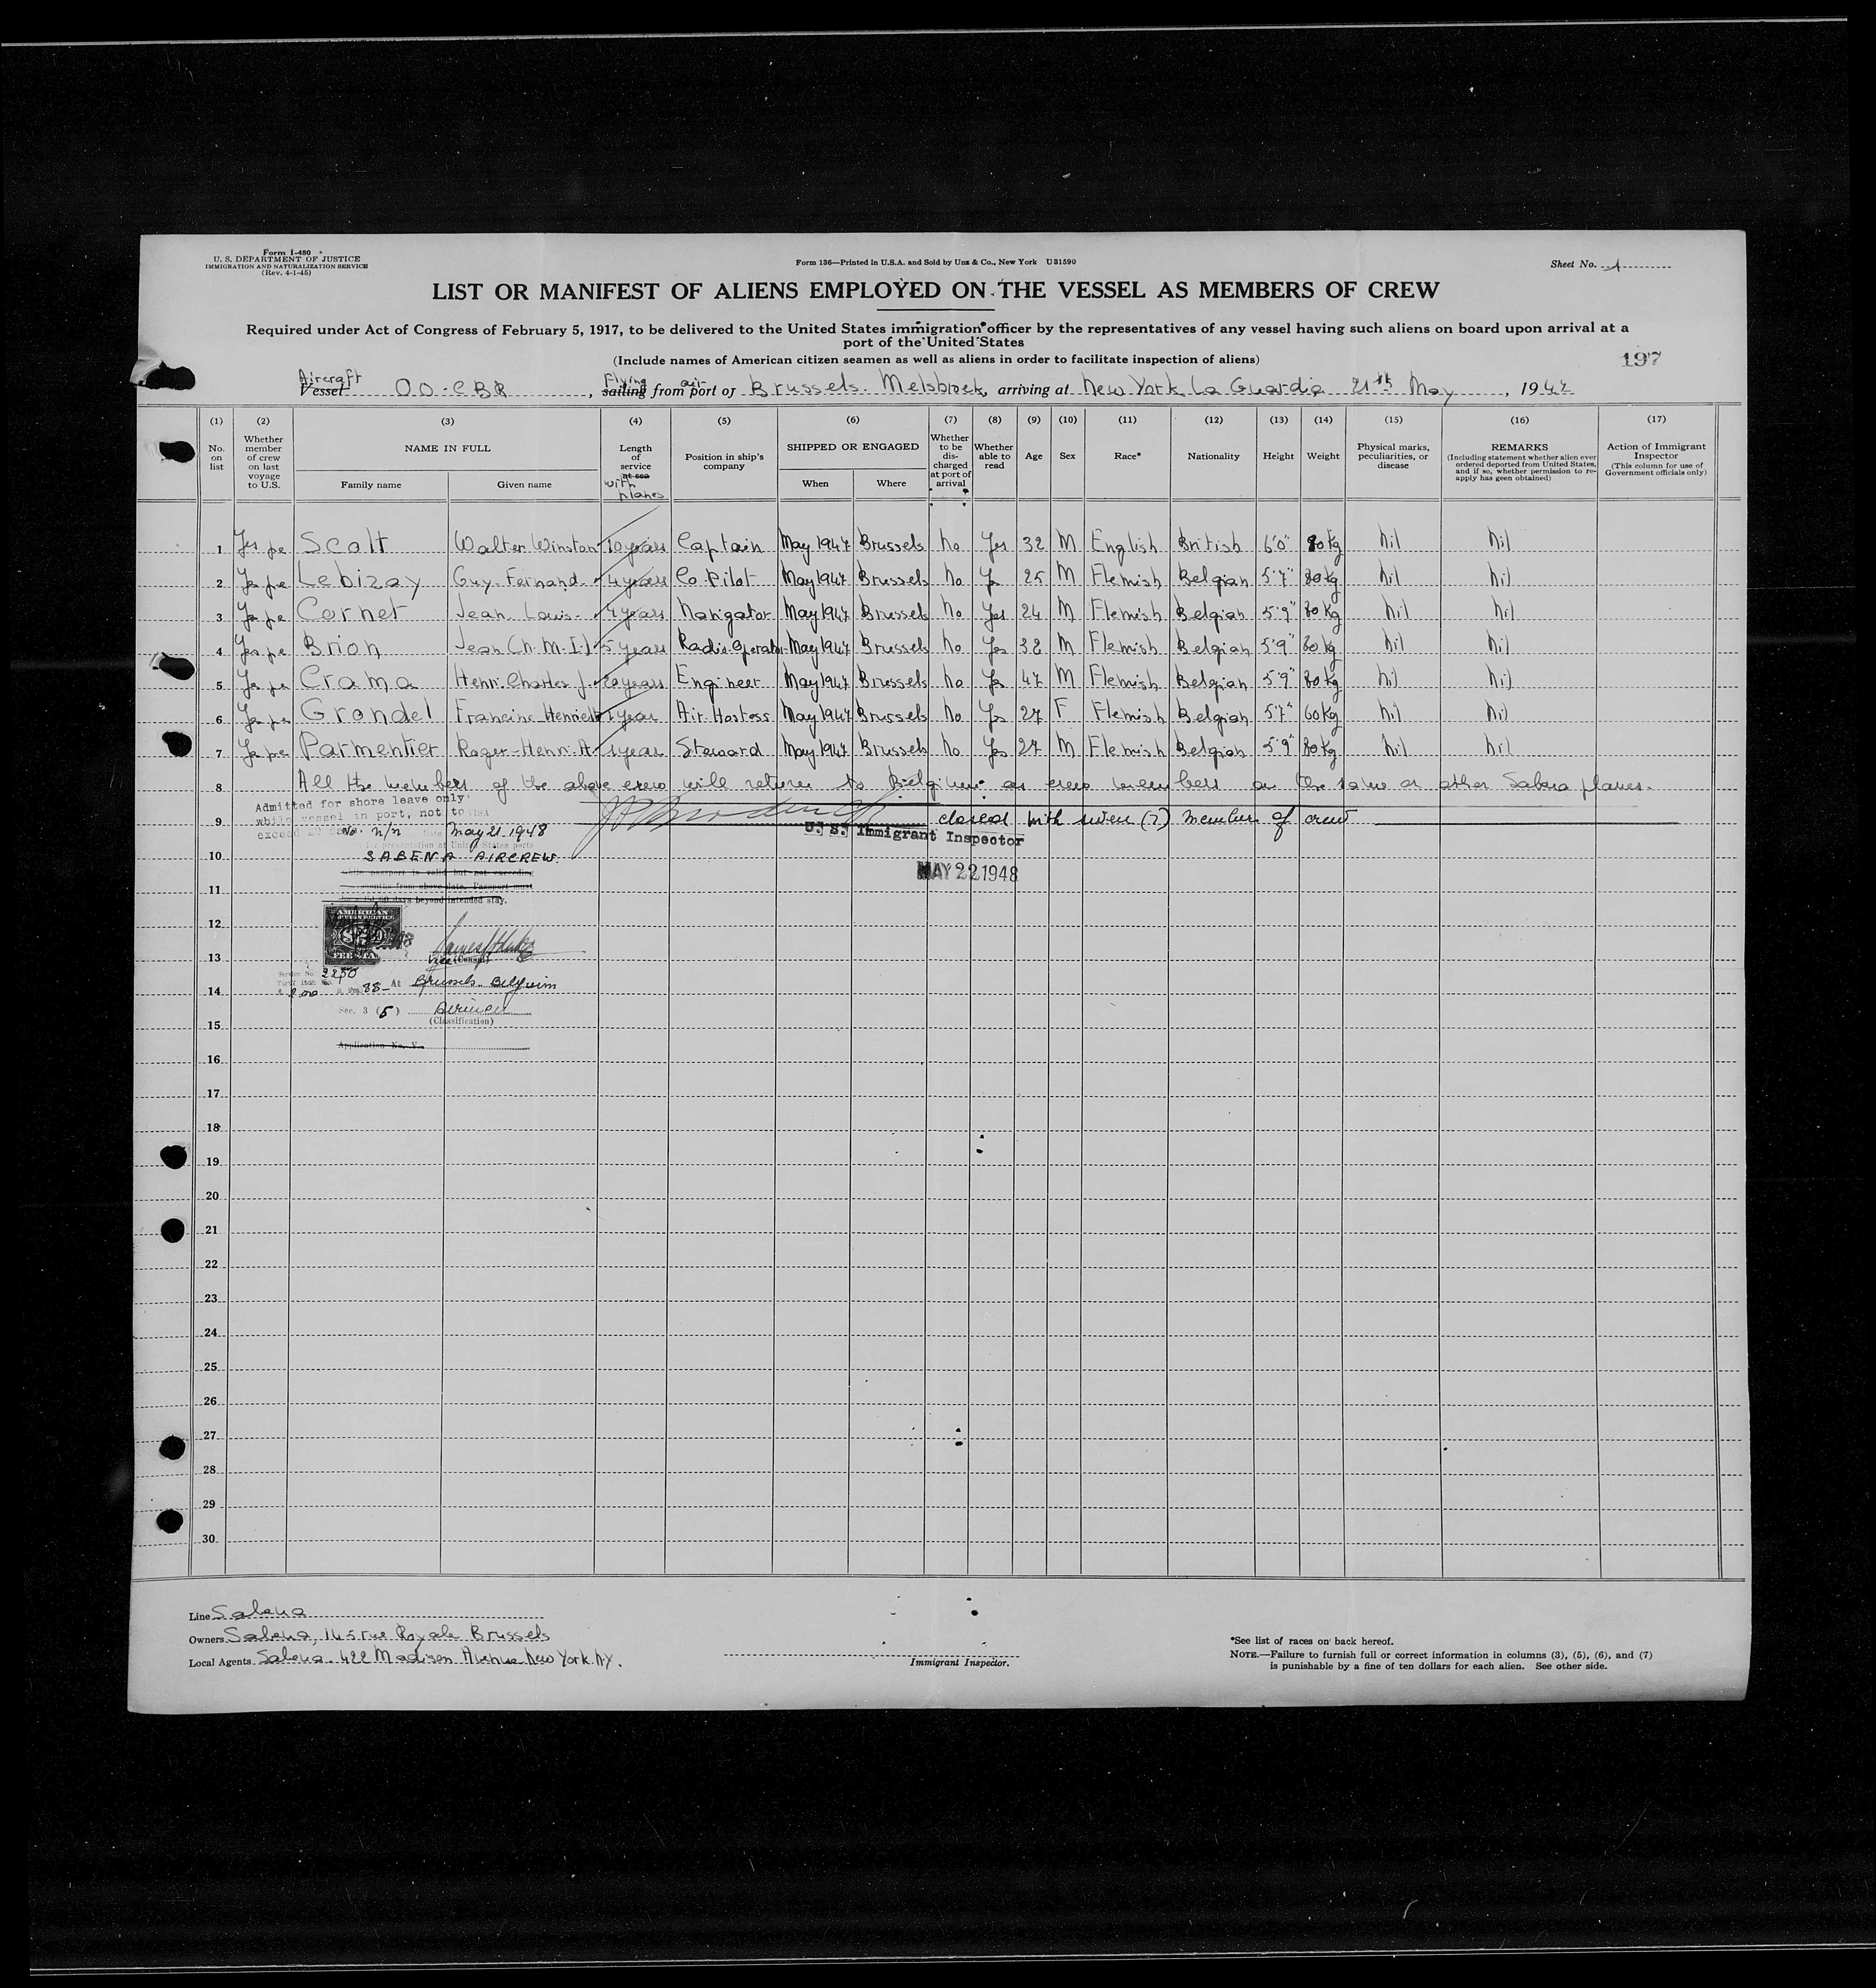 Form I-480
U. S. DEPARTMENT OF JUSTICE
IMMIGRATION AND NATURALIZATION SERVICE
(Rev. 4-1-45)
Form 136—Printed in U.S.A. and Sold by Unz & Co., New York U 31590
Sheet No. 1
LIST OR MANIFEST OF ALIENS EMPLOYED ON THE VESSEL AS MEMBERS OF CREW
Required under Act of Congress of February 5, 1917, to be delivered to the United States immigration officer by the representatives of any vessel having such aliens on board upon arrival at a
port of the United States
(Include names of American citizen seamen as well as aliens in order to facilitate inspection of aliens)
197
Aircraft Flying air
Vessel OO-CBR, sailing from port of Brussels. Melsbroek, arriving at New York La Guardia 21st May, 194
(1) (2) (3) (4) (5) (6) (7) (8) (9) (10) (11) (12) (13) (14) (15) (16) (17)
No. on list
Whether member of crew on last voyage to U.S.
NAME IN FULL
Family name Given name
Length of service at sea with planes
Position in ship's company
SHIPPED OR ENGAGED
When Where
Whether to be discharged at port of arrival
Whether able to read
Age
Sex
Race*
Nationality
Height
Weight
Physical marks, peculiarities, or disease
REMARKS
(Including statement whether alien ever ordered deported from United States, and if so, whether permission to re-apply has geen obtained)
Action of Immigrant Inspector
(This column for use of Government officials only)
1 Yes Scott Walter Winston 10 years Captain May 1947 Brussels No Yes 32 M English British 6'0" 80 kg Nil Nil
2 Yes Lebizay Guy Fernand 4 years Co Pilot May 1947 Brussels No Yes 25 M Flemish Belgian 5'7" 80 kg Nil Nil
3 Yes Cornet Jean Louis 4 years Navigator May 1947 Brussels No Yes 24 M Flemish Belgian 5'9" 80 kg Nil Nil
4 Yes Brion Jean (N.M.I.) 5 years Radio Operator May 1947 Brussels No Yes 32 M Flemish Belgian 5'9" 80 kg Nil Nil
5 Yes Crama Henri Charles J. 20 years Engineer May 1947 Brussels No Yes 47 M Flemish Belgian 5'9" 80 kg Nil Nil
6 Yes Grondel Francine Henriette 1 year Air Hostess May 1947 Brussels No Yes 27 F Flemish Belgian 5'7" 60 kg Nil Nil
7 Yes Parmentier Roger-Henri A. 1 year Steward May 1947 Brussels No Yes 27 M Flemish Belgian 5'9" 80 kg Nil Nil
8 All the members of the above crew will return to Belgium as crew members on the same or other Sabena planes.
Admitted for shore leave only
while vessel in port, not to
exceed 29 days
9 closed with seven (7) members of crew
No. n/n Date May 21, 1948
U. S. Immigrant Inspector
for presentation at United States ports
10 SABENA AIRCREW.
while passport is valid but not exceeding
MAY 22 1948
11 months from above date. Passport must
days beyond intended stay.
12
AMERICAN
FOREIGN SERVICE
FEE STAMP
13
Vice (Consul)
Service No. 2250
Tariff Item No.
14
88- At Brussels, Belgium
Sec. 3 (5)
15
(Classification)
Application No. V.
16
17
18
19
20
21
22
23
24
25
26
27
28
29
30
Line Sabena
Owners Sabena, 145 rue Royale Brussels
Local Agents Sabena. 422 Madison Avenue New York N.Y.
Immigrant Inspector.
*See list of races on back hereof.
NOTE.—Failure to furnish full or correct information in columns (3), (5), (6), and (7)
is punishable by a fine of ten dollars for each alien. See other side.